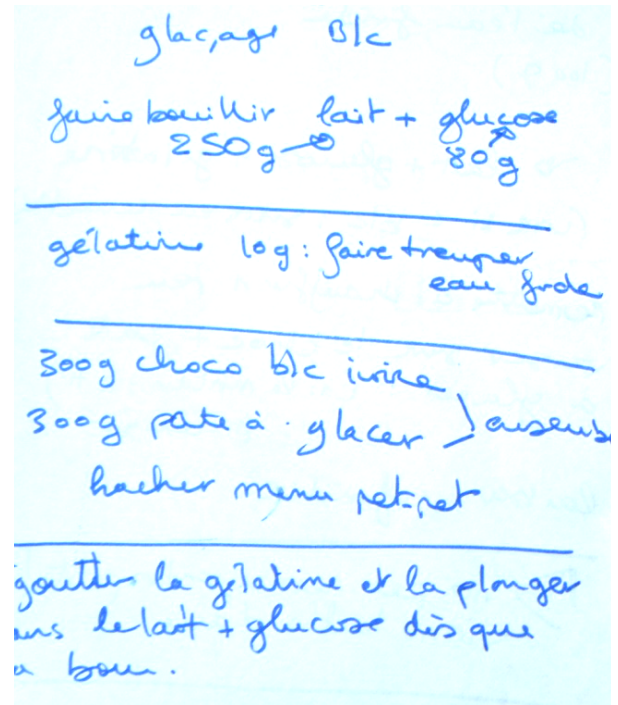 glaçage Blc
faire bouillir lait + glucose
250g 80g
gélatine 10g : faire tremper
eau froide
300g choco blc ivoire
300g pate à glacer } ensemb
hacher menu pet-pet
goutter la gélatine et la plonger
ans le lait + glucose dès que
a bou.